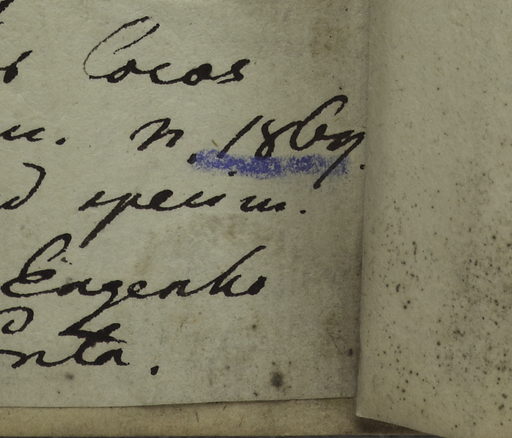 Cocos
n. 1869.
specim.
Engenho